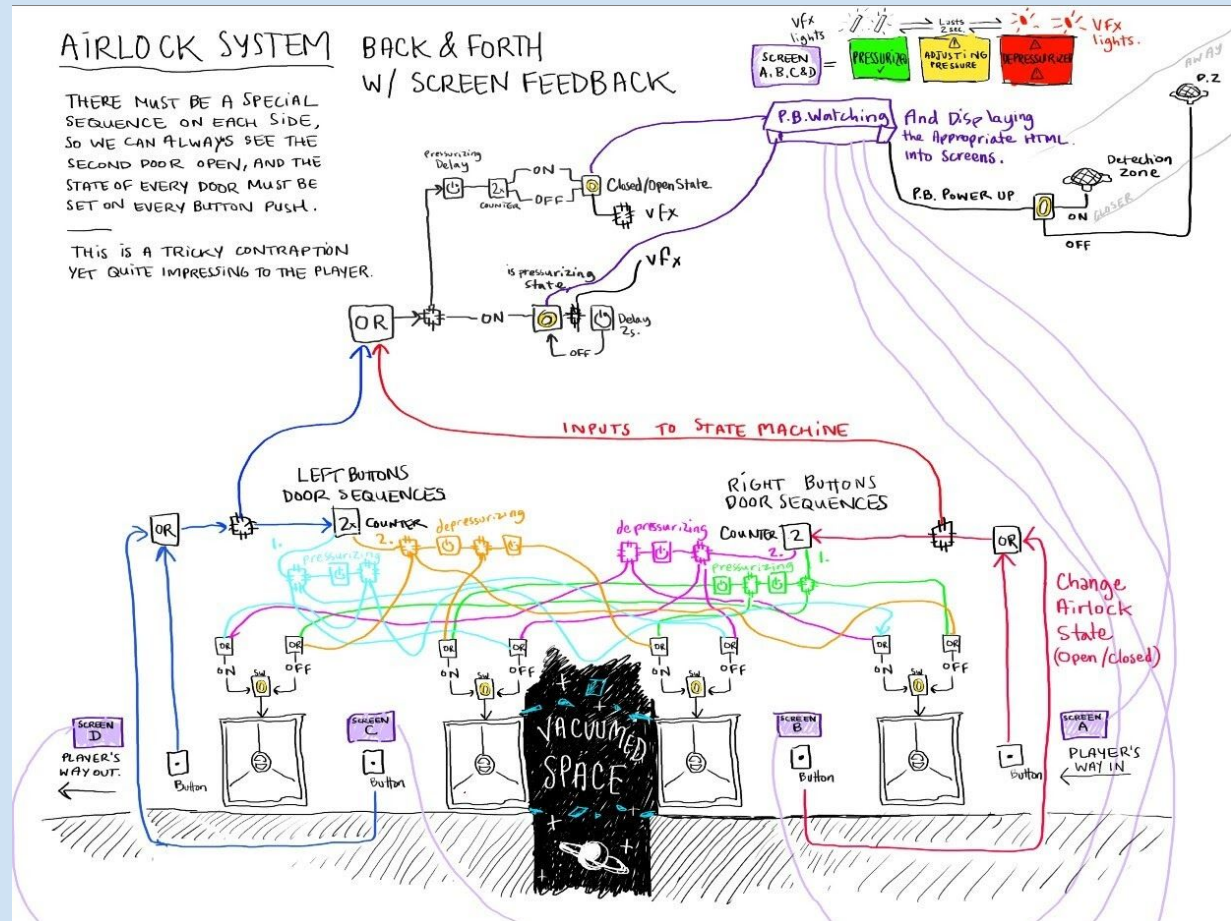 AiRLOCK SYSTEM
BACK & FORTH
W/ SCREEN FEEDBACK
THERE MUST BE A SPECIAL
SEQUENCE ON EACH SIDE,
SO WE CAN ALWAYS SEE THE
SECOND DOOR OPEN, AND THE
STATE OF EVERY DOOR MUST BE
SET ON EVERY BUTTON PUSH.
THIS IS A TRICKY CONTRAPTION
YET QUITE IMPRESSING TO THE PLAYER.
vfx
lights
Lasts
2sec.
VFX
lights.
SCREEN
A, B, C & D
=
PRESSURIZED
ADJUSTING
PRESSURE
DEPRESSURIZED
AWAY
D.Z
P.B. Watching
And Displaying
the Appropriate HTML
into Screens.
Detection
Zone
CLOSER
P.B. POWER UP
ON
OFF
Pressurizing
Delay
2x
COUNTER
ON
OFF
Closed/Open State
vfx
is pressurizing
State
vfx
OR
ON
Delay
2s.
OFF
INPUTS TO STATE MACHINE
LEFT BUTTONS
DOOR SEQUENCES
RIGHT BUTTONS
DOOR SEQUENCES
OR
2x
COUNTER
1.
2.
depressurizing
pressurizing
depressurizing
COUNTER
2
2.
1.
pressurizing
OR
Change
Airlock
State
(Open/closed)
OR
OR
OR
OR
OR
OR
OR
OR
ON
OFF
ON
OFF
ON
OFF
ON
OFF
SW
SW
SW
SW
SCREEN
D
PLAYER'S
WAY OUT.
Button
SCREEN
C
Button
VACUUMED
SPACE
SCREEN
B
Button
SCREEN
A
PLAYER'S
WAY IN
Button